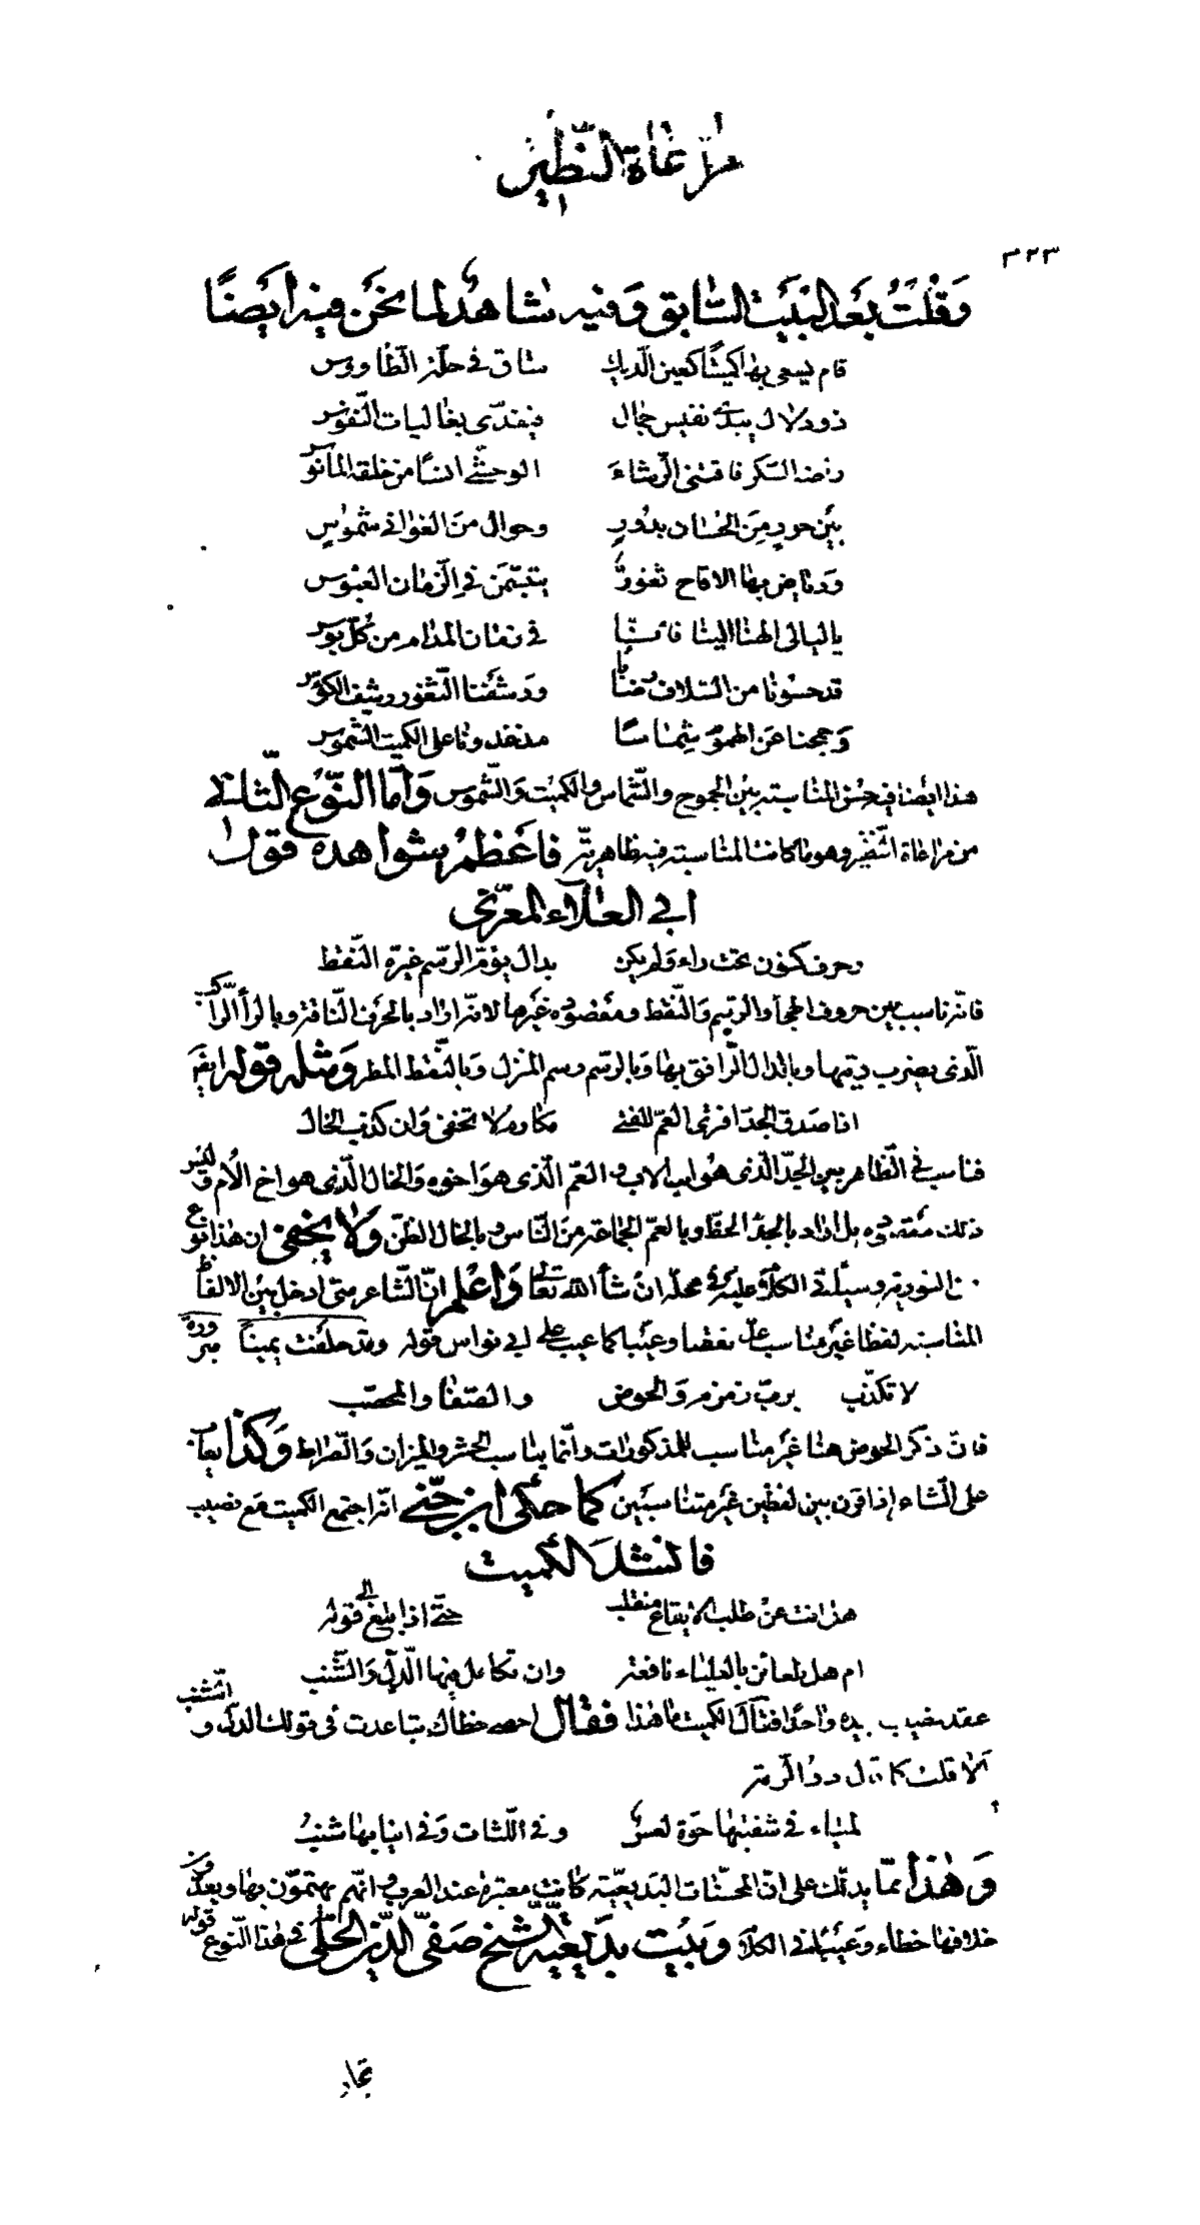 مراعاة النظير
٣٢٣
وقلت بعد البيت السابق وفيه شاهد لما نحن فيه ايضا
قام يسعى بها كميتا كعين الديك ساق في حلة الطاووس
ذو دلال يبدى نفيس جمال فيفدى بغاليات النفوس
رنحه السكر فاقتنى الرشاء الوحشي انسا من خلقه المأنوس
بين حور من الحسان بدور وحوال من الغواني شموس
ورياض بها الاقاح ثغور يتبسمن في الزمان العبوس
يا ليالى الهنا الينا في زمان المدام من كل بوس
قد حسونا من السلاف رضابا ورشفنا الثغور رشف الكؤس
وجمحنا عن الهموم شماسا مذ غدونا على الكميت الشموس
هذا ايضا فيه حسن المناسبة بين الجموح والشماس والكميت والشموس واما النوع الثالث
من مراعاة النظير وهو ما كانت المناسبة فيه ظاهرية فاعظم شواهده قول
ابي العلاء المعري
وحرف كنون تحت راء ولم يكن بدال يؤم الرسم غيره النقط
فانه ناسب بين حروف الهجاء والرسم والنقط ومقصوده غيرها لانه اراد بالحرف الناقة وبالراء الراكب
الذى يضرب ريتها وبالدال الرافق بها وبالرسم رسم المنزل وبالنقط المطر ومثله قوله ايضا
اذا صدق الجد افترى العم للفتى مكارم لا تخفى وان كذب الخال
فناسب في الظاهر بين الجد الذى هو اب الاب والعم الذى هو اخوه والخال الذى هو اخ الأم وليس
ذلك مقصوده بل اراد بالجد الحظ وبالعم الجماعة من الناس وبالخال الظن ولا يخفى ان هذا نوع
من التورية وسيأتي الكلام عليه في محله ان شاء الله تعا واعلم ان الشاعر متى ادخل بين الالفاظ
المناسبة لفظا غير مناسب عد نقصا وعيبا كما عيب على ابي نواس قوله وقد حلفت يمينا مبرورة
لا تكذب برب زمزم والحوض والصفا والمحصب
فان ذكر الحوض هنا غير مناسب للمذكورات وانما يناسب الحشر والميزان والصراط وكذا يعاب
على الشاعر إذا قرن بين لفظين غير متناسبين كما حكى ابن جني انه اجتمع الكميت مع نصيب
فانشد الكميت
هل انت عن طلب الايفاع منقلب حتى اذا بلغ الى قوله
ام هل ظعائن بالعلياء نافعة وان تكامل فيها الدل والشنب
عقد نصيب بيده واحدا فقال الكميت ما هذا فقال احصى خطاك تباعدت في قولك الدل والشنب
ألا قلت كما قال ذو الرمة
لمياء في شفتيها حوة لعس وفي اللثات وفي انيابها شنب
وهذا مما يدلك على ان المحسنات البديعية كانت معتبرة عند العرب وانهم يهتمون بها ويعدون
خلافها خطاء وعيبا في الكلام وبيت بديعية الشيخ صفى الدين الحلى في هذا النوع قوله
تجار